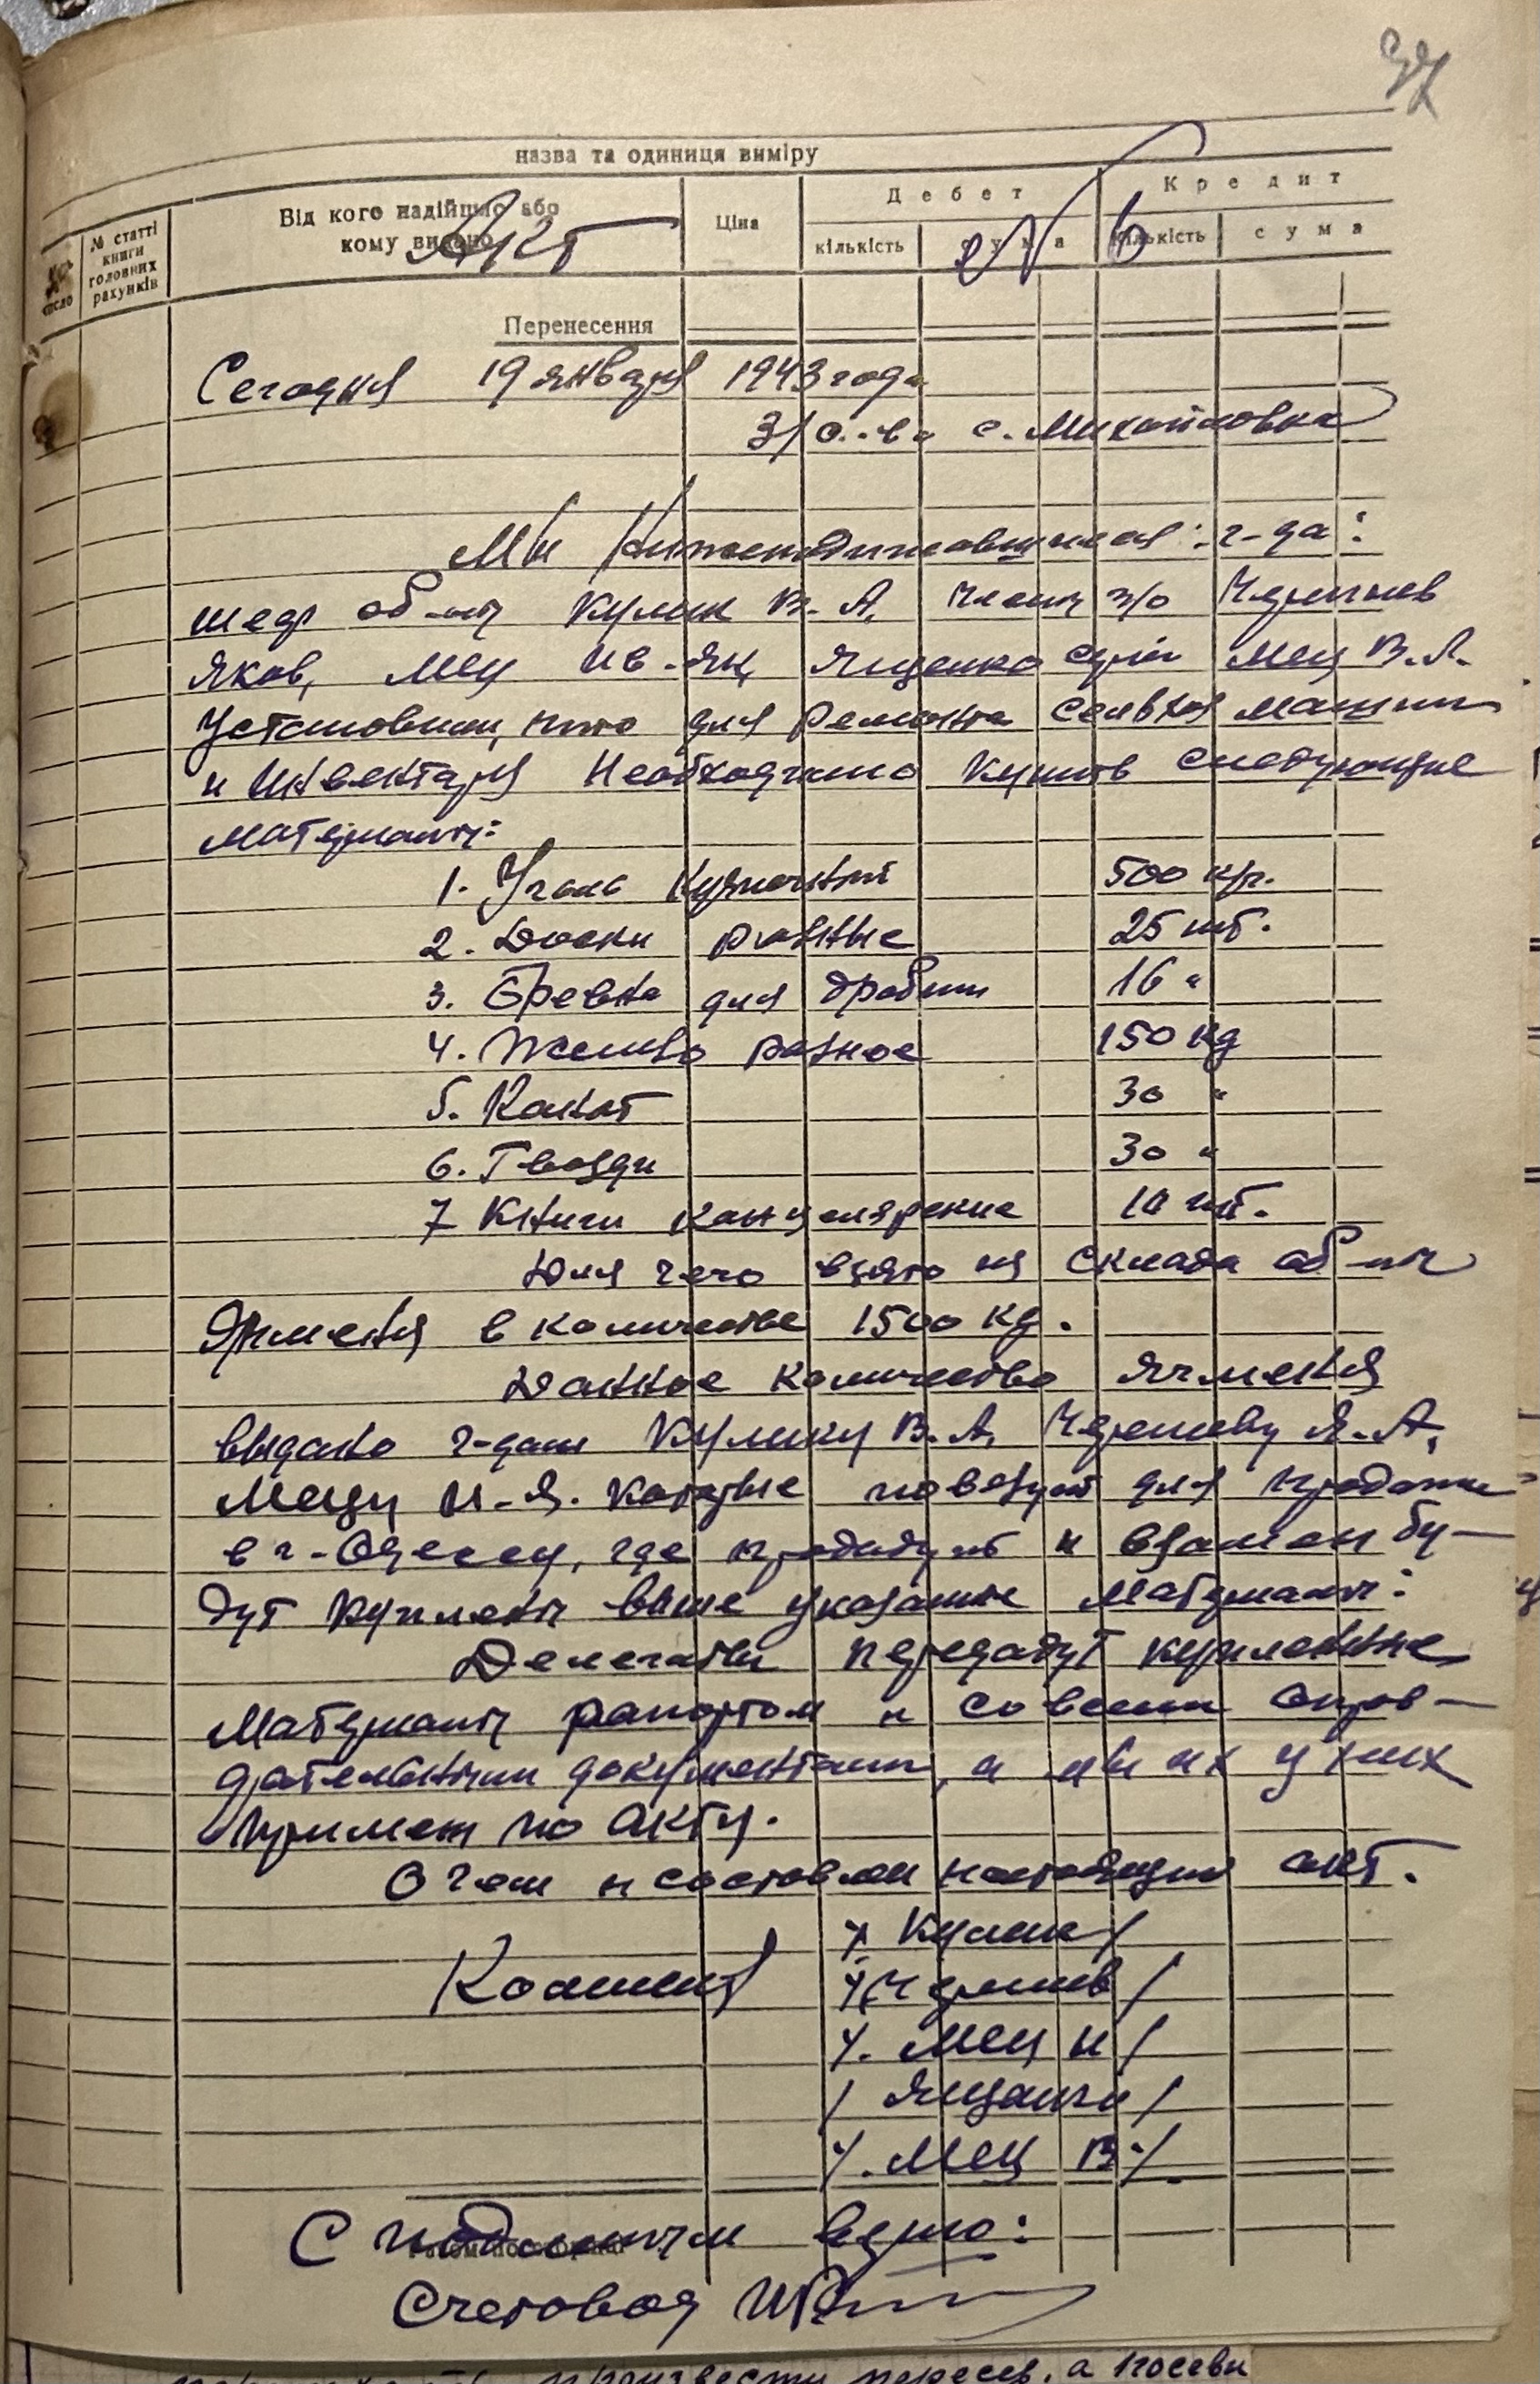 37
назва та одиниця виміру
число
№ статті книги головних рахунків
Від кого надійшло або кому видано
Ціна
Дебет
Кредит
кількість
сума
кількість
сума
Акт № 6
Перенесення
Сегодня 19 января 1943 года
З/о..ва с. Михайловка
Мы Нижеподписавшиеся: г-да:
шеф об-ны Кулик В. А. члены з/о Чернышев
Яков, Мец Ив-Як, Ященко Мец В. Я.
Установили, что для ремонта сельхоз машин
и инвентаря Необходимо купить следующие
материалы:
1. Уголь Кузнечный 500 кгр.
2. Доски разные 25 шт.
3. Бревна для дробин 16 "
4. Железо разное 150 кg
5. Канат 30 "
6. Гвозди 30 "
7 Книги канцелярские 10 шт.
Для чего взято из склада об-ны
Ячменя в количестве 1500 кg.
Данное количество ячменя
выдано г-дам Кулику В. А. Я. А,
Мецу И-Я. которые повезут для продажи
в г-Одессу, где продадут и взамен бу-
дут куплены выше указанные материалы:
Делегаты передадут купленные
Материалы рапортом и со всеми оправ-
дательными документами, а мы их у них
примем по акту.
О чем и составлен настоящий акт.
/. Кулик /
Комиссия /. /
/. Мец И /
/ /
/. Мец В /.
С подлинным верно:
Счетовод
произвести пересев, а посевы